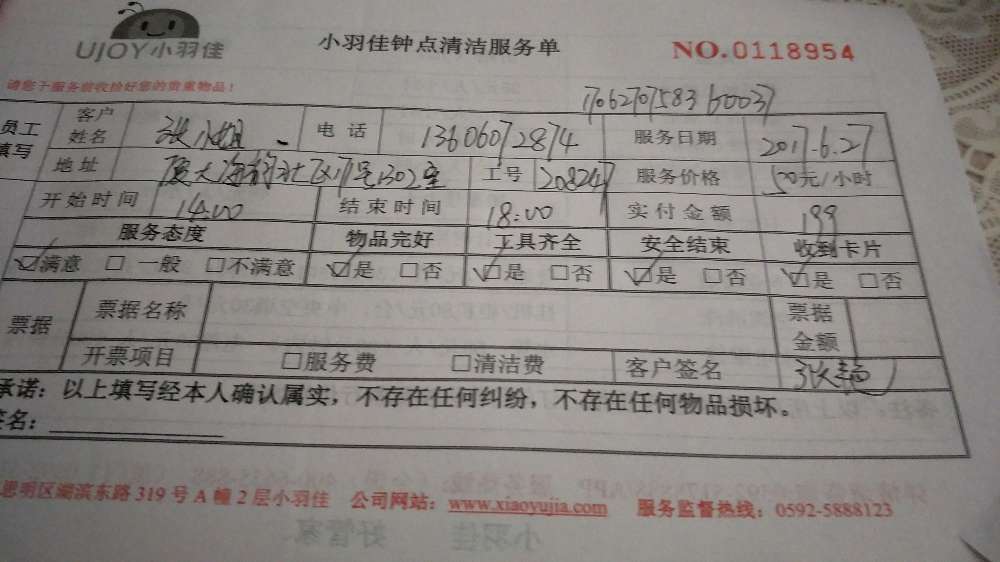 UJOY小羽佳
小羽佳钟点清洁服务单
NO.0118954
请您于服务前收拾好您的贵重物品!
1706270758360037
员工填写 客户姓名 张小姐 电话 13606072874 服务日期 2017.6.27
地址 厦大海韵社区17号1302室 工号 208247 服务价格 50元/小时
开始时间 14:00 结束时间 18:00 实付金额 199
服务态度 物品完好 工具齐全 安全结束 收到卡片
☑满意 □一般 □不满意 ☑是 □否 ☑是 □否 ☑是 □否 ☑是 □否
票据 票据名称 票据金额
开票项目 □服务费 □清洁费 客户签名
承诺：以上填写经本人确认属实，不存在任何纠纷，不存在任何物品损坏。
签名：
思明区湖滨东路319号A幢2层小羽佳 公司网站：www.xiaoyujia.com 服务监督热线：0592-5888123